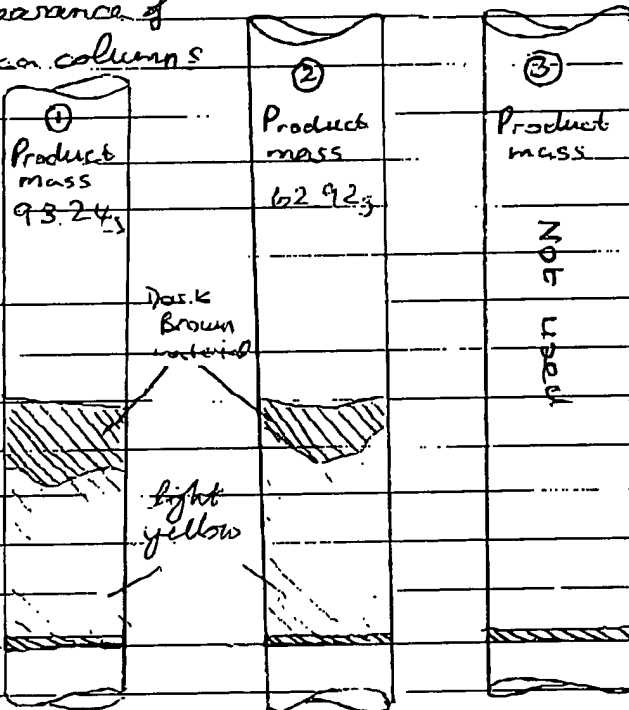 of
columns
①
Product
mass
93.24g
②
Product
mass
62.92g
③
Product
mass
Not used
Dark
Brown
material
light
yellow